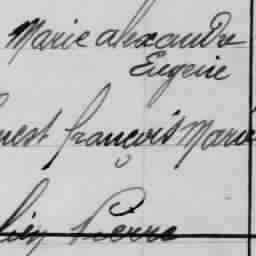 Marie alexandre
Eugenie
nest françois Marie
Pierre